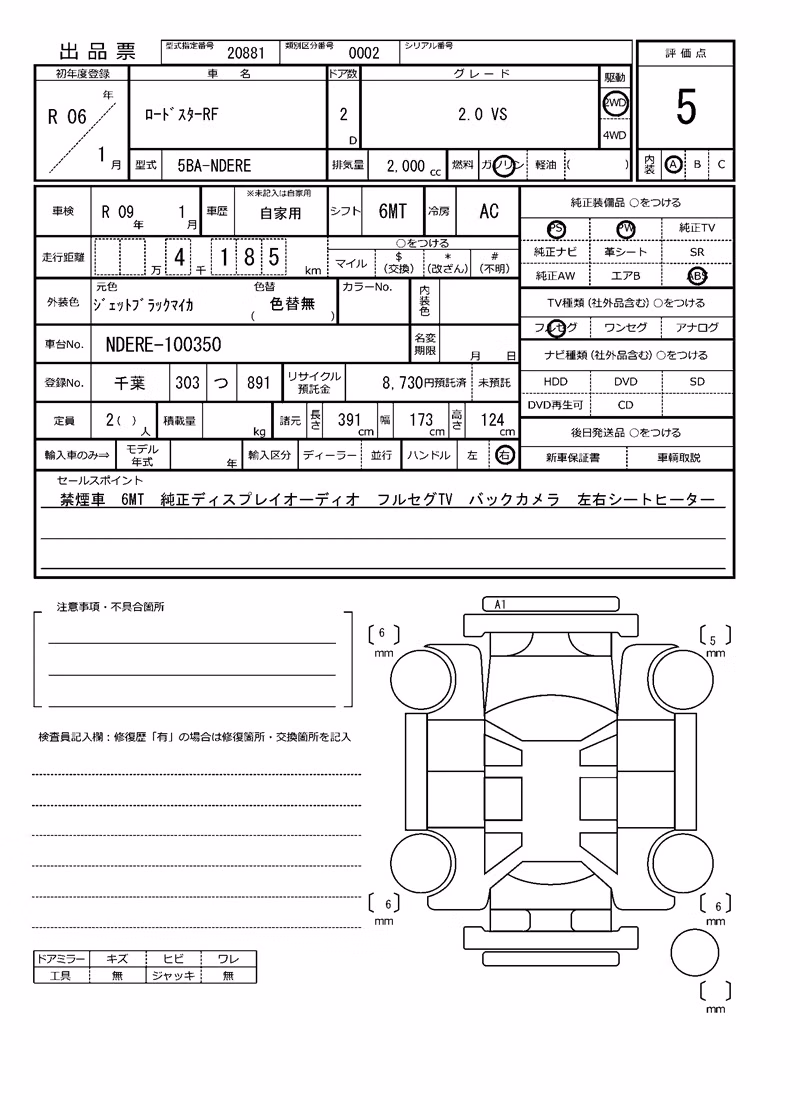 出品票 型式指定番号 20881 類別区分番号 0002 シリアル番号
評価点
5
内装 A B C
初年度登録 車名 ドア数 グレード 駆動
R 06 年 1 月 ﾛｰﾄﾞｽﾀｰRF 2 D 2.0 VS 2WD 4WD
型式 5BA-NDERE 排気量 2,000 cc 燃料 ガソリン 軽油 ( )
車検 R 09 年 1 月 車歴 ※未記入は自家用 自家用 シフト 6MT 冷房 AC
走行距離 万 4 千 1 8 5 km ○をつける
マイル $ (交換) * (改ざん) # (不明)
外装色 元色 ｼﾞｪｯﾄﾌﾞﾗｯｸﾏｲｶ 色替 ( 色替無 ) カラーNo. 内装色
車台No. NDERE-100350 名変期限 月 日
登録No. 千葉 303 つ 891 リサイクル預託金 8,730円預託済 未預託
定員 2 ( ) 人 積載量 kg 諸元 長さ 391 cm 幅 173 cm 高さ 124 cm
輸入車のみ⇒ モデル年式 年 輸入区分 ディーラー 並行 ハンドル 左 右
純正装備品 ○をつける
PS PW 純正TV
純正ナビ 革シート SR
純正AW エアB ABS
TV種類 (社外品含む) ○をつける
フルセグ ワンセグ アナログ
ナビ種類 (社外品含む) ○をつける
HDD DVD SD
DVD再生可 CD
後日発送品 ○をつける
新車保証書 車輌取説
セールスポイント
禁煙車 6MT 純正ディスプレイオーディオ フルセグTV バックカメラ 左右シートヒーター
注意事項・不具合箇所
検査員記入欄：修復歴「有」の場合は修復箇所・交換箇所を記入
ドアミラー キズ ヒビ ワレ
工具 無 ジャッキ 無
A1
6 mm
5 mm
6 mm
6 mm
mm